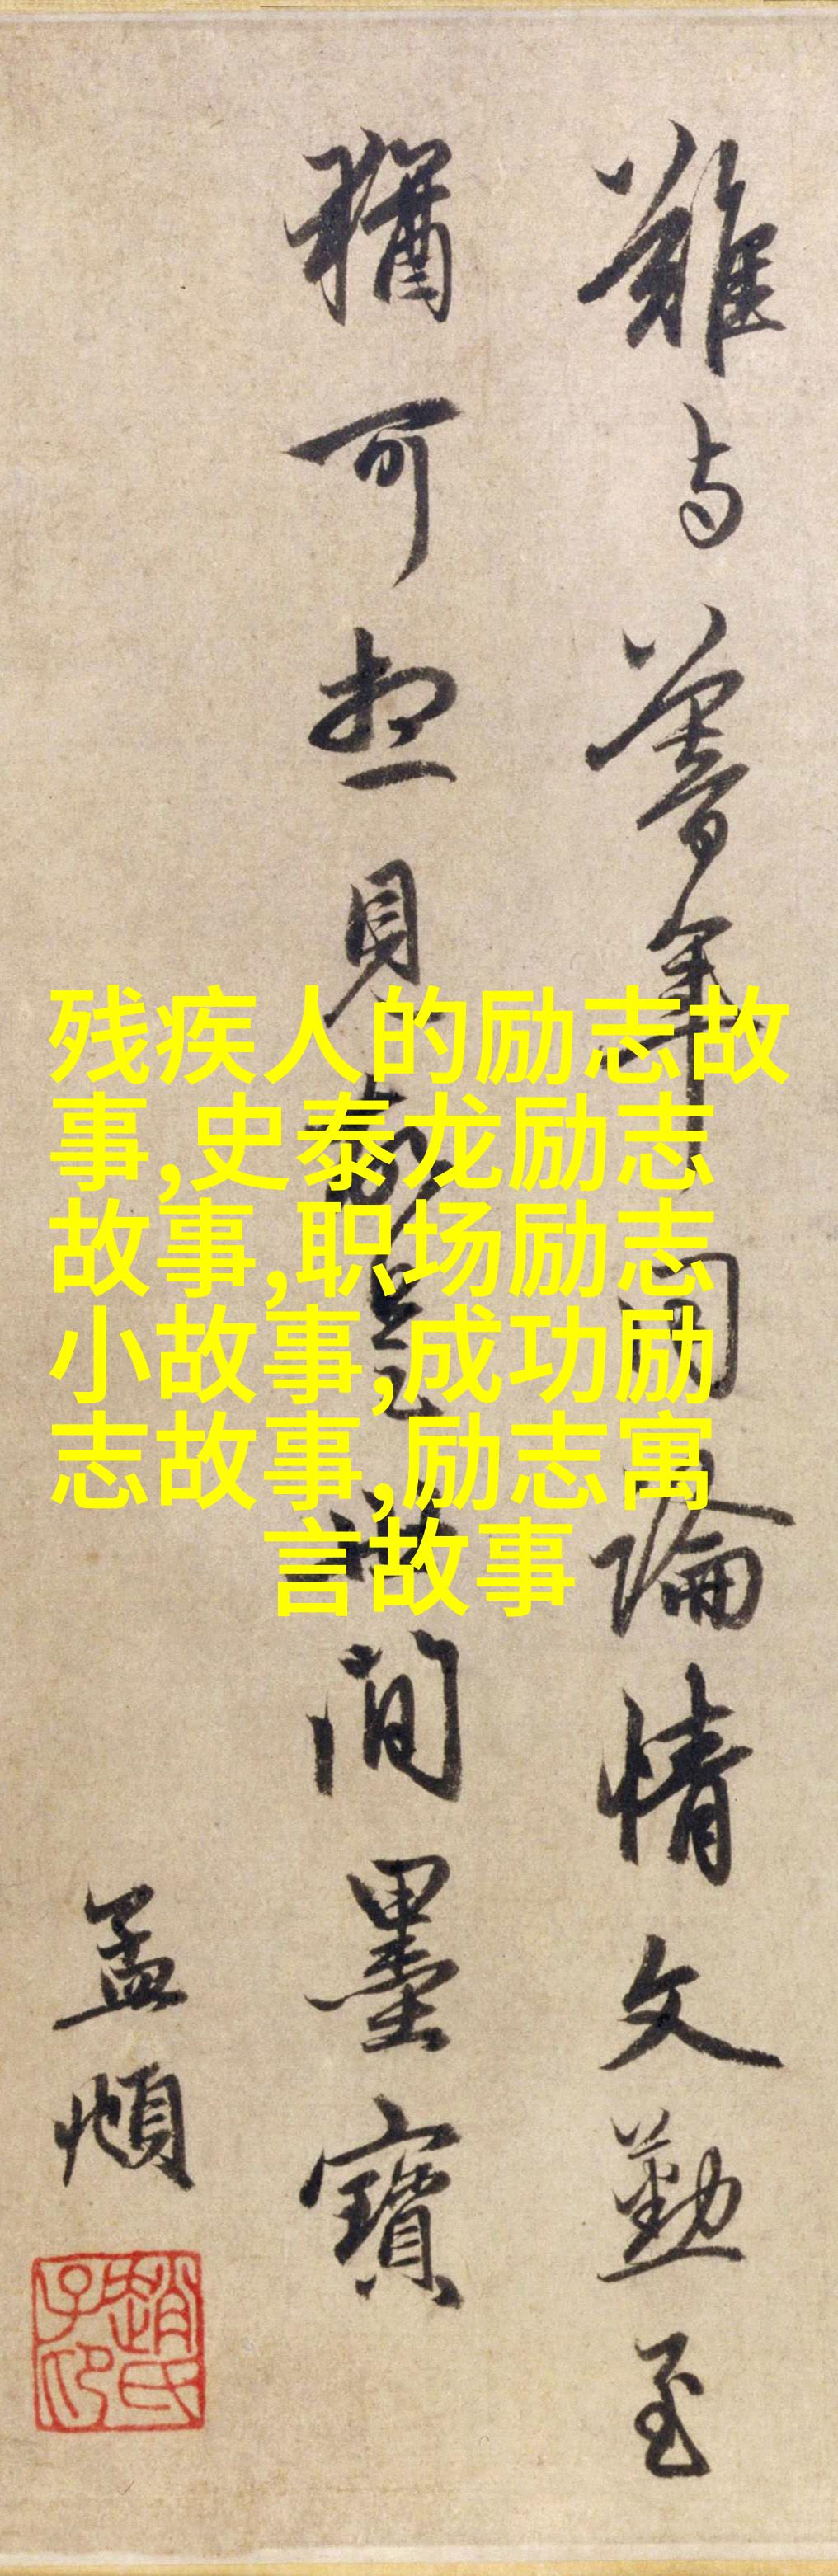 難与暮年同論情文勤至
猶可想見誠是世間墨寶
孟頫
趙氏子印
残疾人的励志故
事,史泰龙励志
故事,职场励志
小故事,成功励
志故事,励志寓
言故事